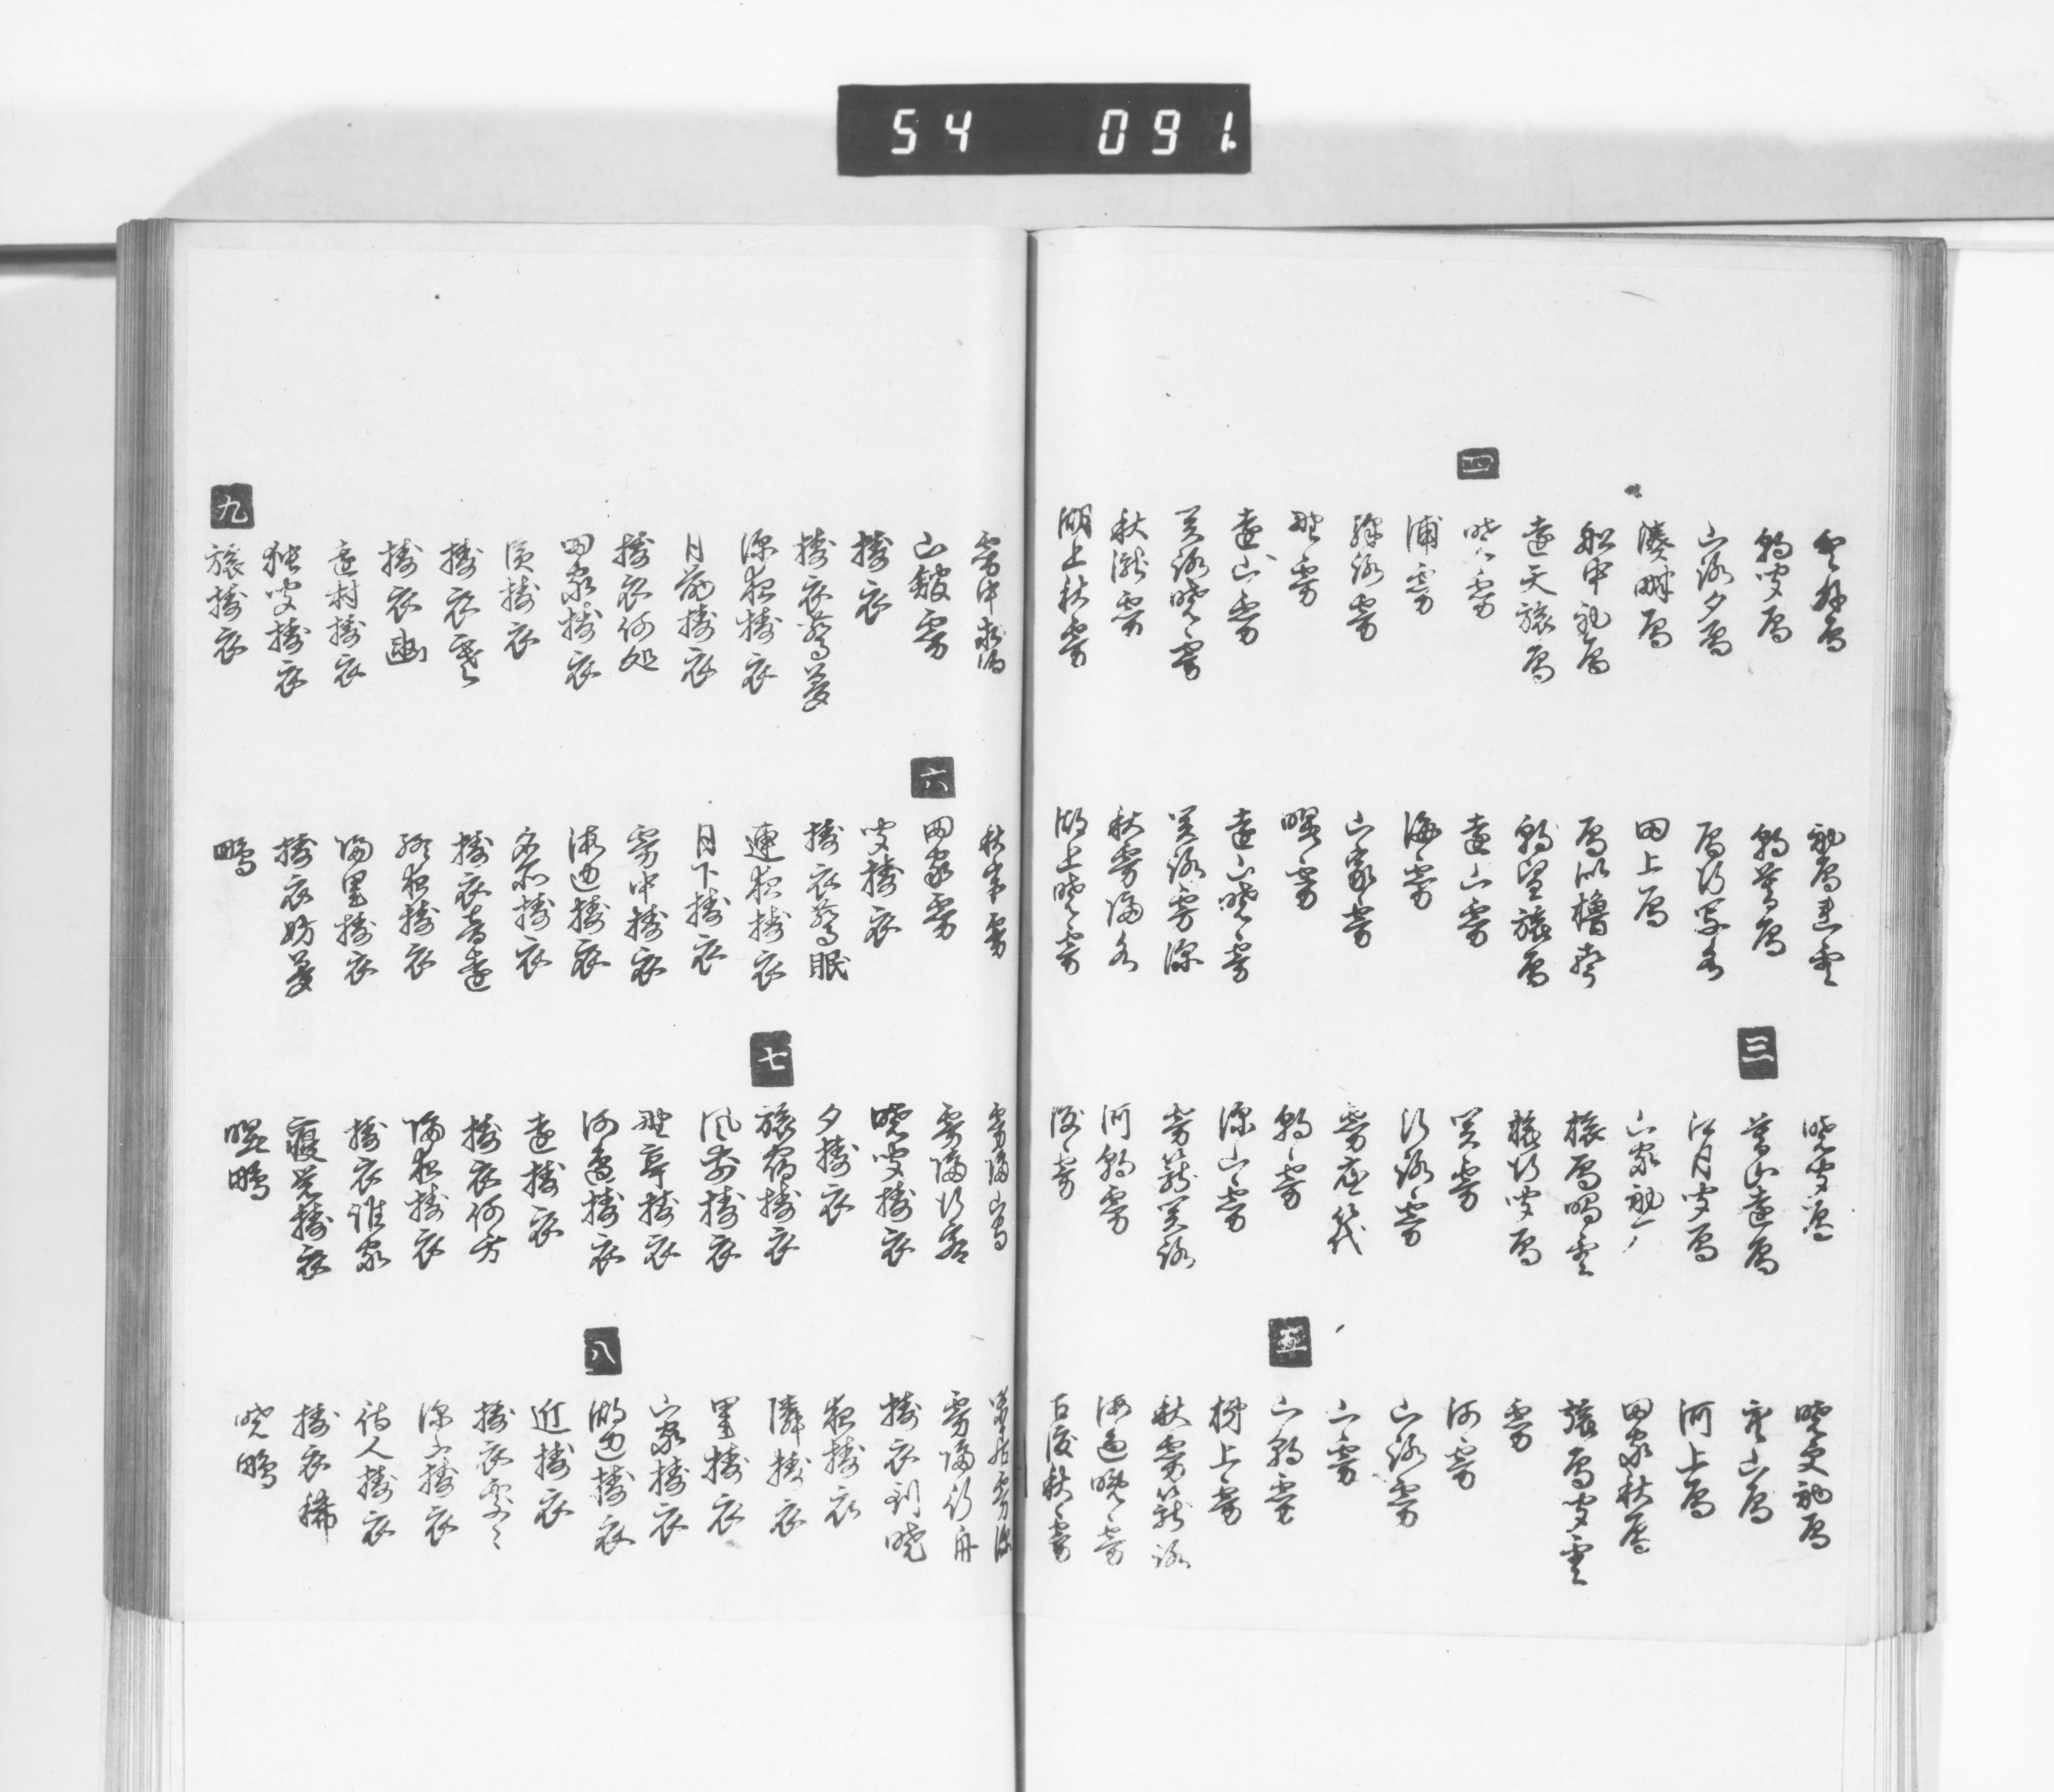 54 091
雲外雁
初雁連雲
暁聞雁
暁更初雁
朝聞雁
朝暮雁
三
暮山遠雁
雲山雁
山路夕雁
雁行写水
江月聞雁
河上雁
湊畔雁
田上雁
山家初〃
田家秋雁
船中初雁
雁似櫓声
旅雁鳴雲
旅雁聞雲
遠天旅雁
朝望旅雁
旅行聞雁
霧
四
暁霧
遠山霧
関霧
河霧
浦霧
海霧
行路霧
山路霧
駅路霧
山家霧
霧底筏
山霧
野霧
曙霧
朝霧
五
山朝霧
遠山霧
遠山暁霧
深山霧
上霧
関路暁霧
関路霧深
霧籠関路
秋霧籠路
秋瀧霧
秋霧隔水
河朝霧
海辺暁霧
湖上秋霧
湖上暁霧
渡霧
古渡秋霧
霧中求泊
秋市霧
霧隔山寺
閑居霧深
山館霧
六
田家霧
霧隔行客
霧隔行舟
擣衣
聞擣衣
暁聞擣衣
擣衣到暁
擣衣驚夢
擣衣驚眠
夕擣衣
夜擣衣
深夜擣衣
連夜擣衣
七
旅宿擣衣
隣擣衣
月前擣衣
月下擣衣
風前擣衣
里擣衣
擣衣何処
霧中擣衣
野亭擣衣
山家擣衣
田家擣衣
海辺擣衣
河辺擣衣
八
湖辺擣衣
浜擣衣
名所擣衣
遠擣衣
近擣衣
擣衣寒
擣衣音遠
擣衣何方
擣衣処々
擣衣幽
終夜擣衣
隔夜擣衣
深山擣衣
遠村擣衣
隔里擣衣
擣衣誰家
待人擣衣
独聞擣衣
擣衣妨夢
寝覚擣衣
擣衣稀
九
旅擣衣
鴫
曙鴫
暁鴫